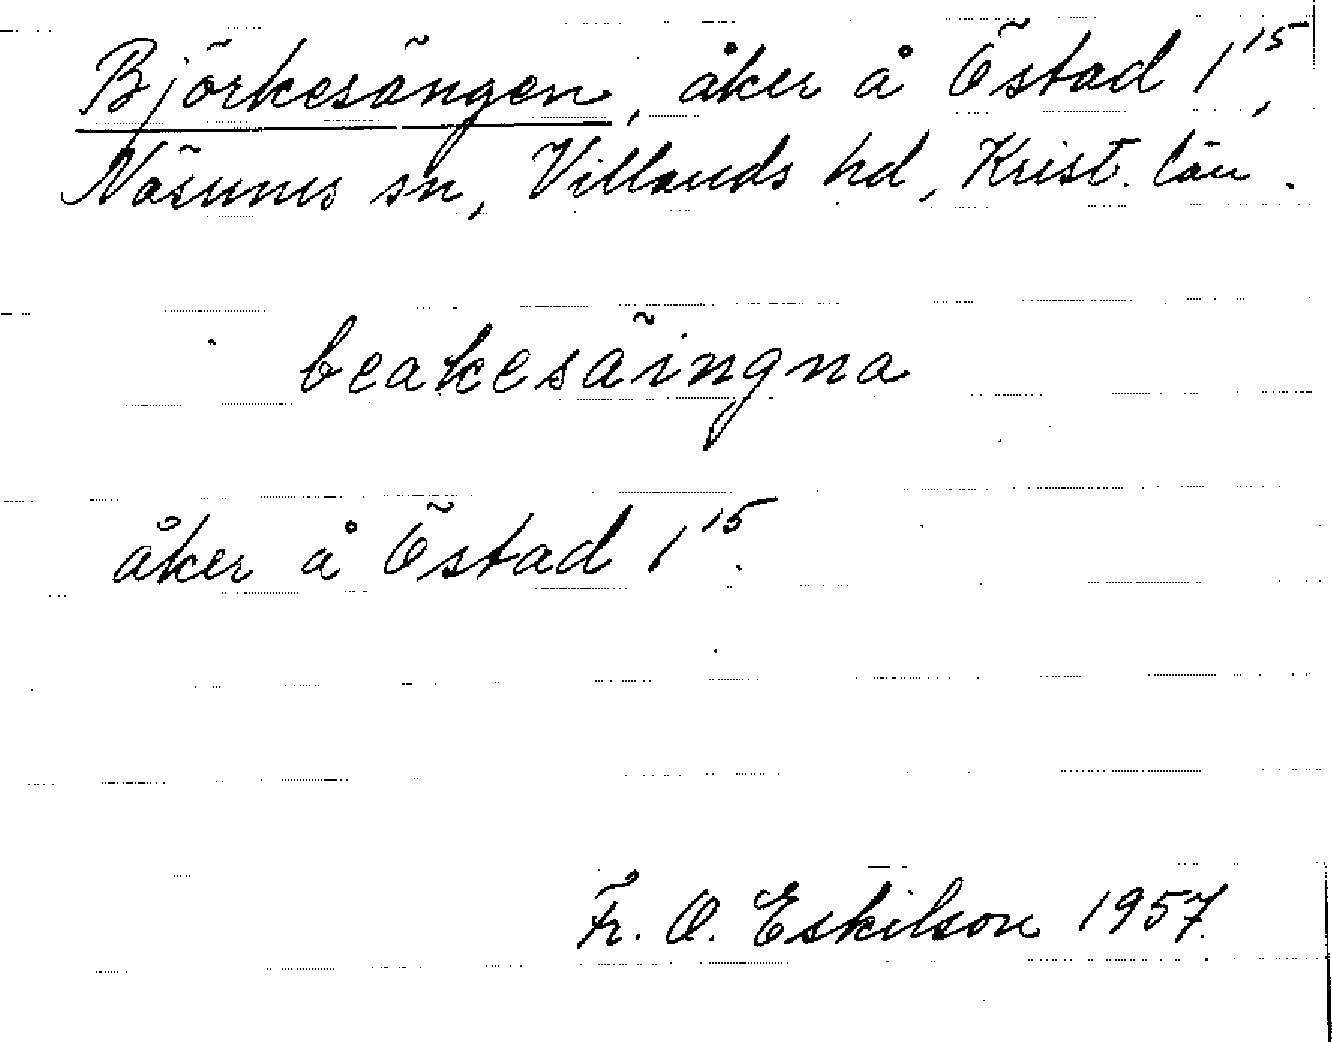 Björkesängen, åker å Östad 1¹⁵,
Näsums sn, Villands hd, Krist. län.
beakesäingna
åker å Östad 1¹⁵.
Fr. O. Eskilson 1957.